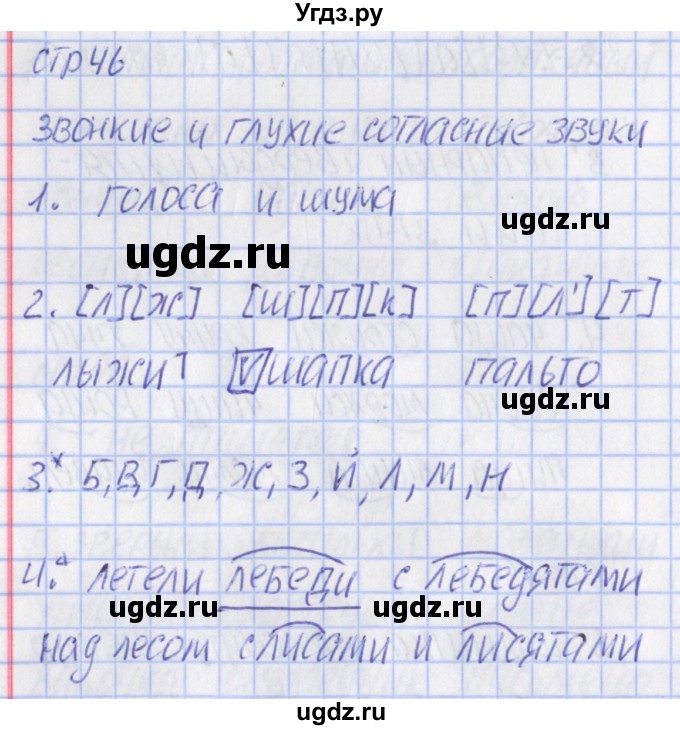 Угдз.ру
стр 46
звонкие и глухие согласные звуки
1. голоса и шума
ugdz.ru
ugdz.ru
2. [л][ж] [ш][п][к] [п][л'][т]
лыжи 1 [v] шапка пальто
3.* Б, В, Г, Д, Ж, З, Й, Л, М, Н
4. летели лебеди с лебедятами
ugdz.ru ugdz.ru
над лесом с лисами и лисятами
ugdz.ru